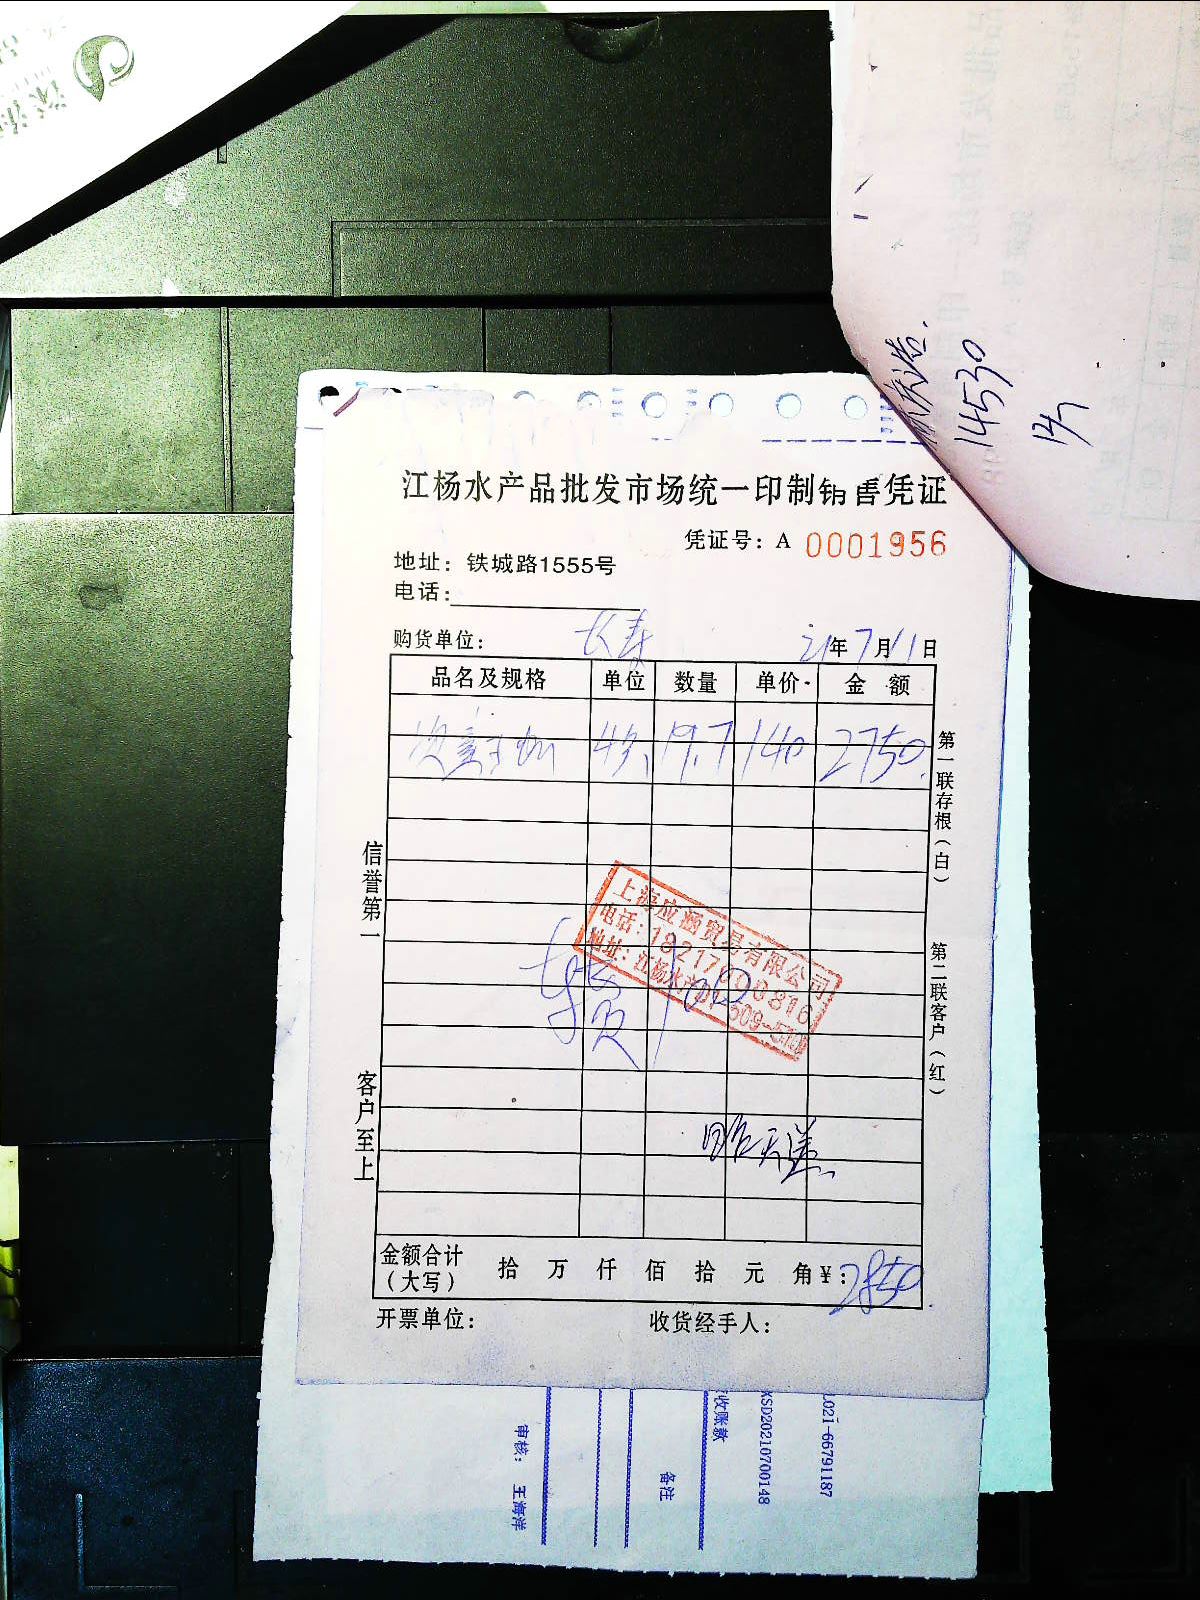 14530
江杨水产品批发市场统一印制销售凭证
凭证号：A 0001956
地址：铁城路1555号
电话：
购货单位： 长寿 21年7月11日
品名及规格 单位 数量 单价 金额
19.7 140 2750
第一联存根（白）
第二联客户（红）
信誉第一
客户至上
上海应涵贸易有限公司
电话：18217608816
地址：江杨水产
100
昨天送
金额合计（大写） 拾 万 仟 佰 拾 元 角 ¥：2850
开票单位： 收货经手人：
L021-66791187
XSD20210700148
收账款
备注
审核： 王海洋